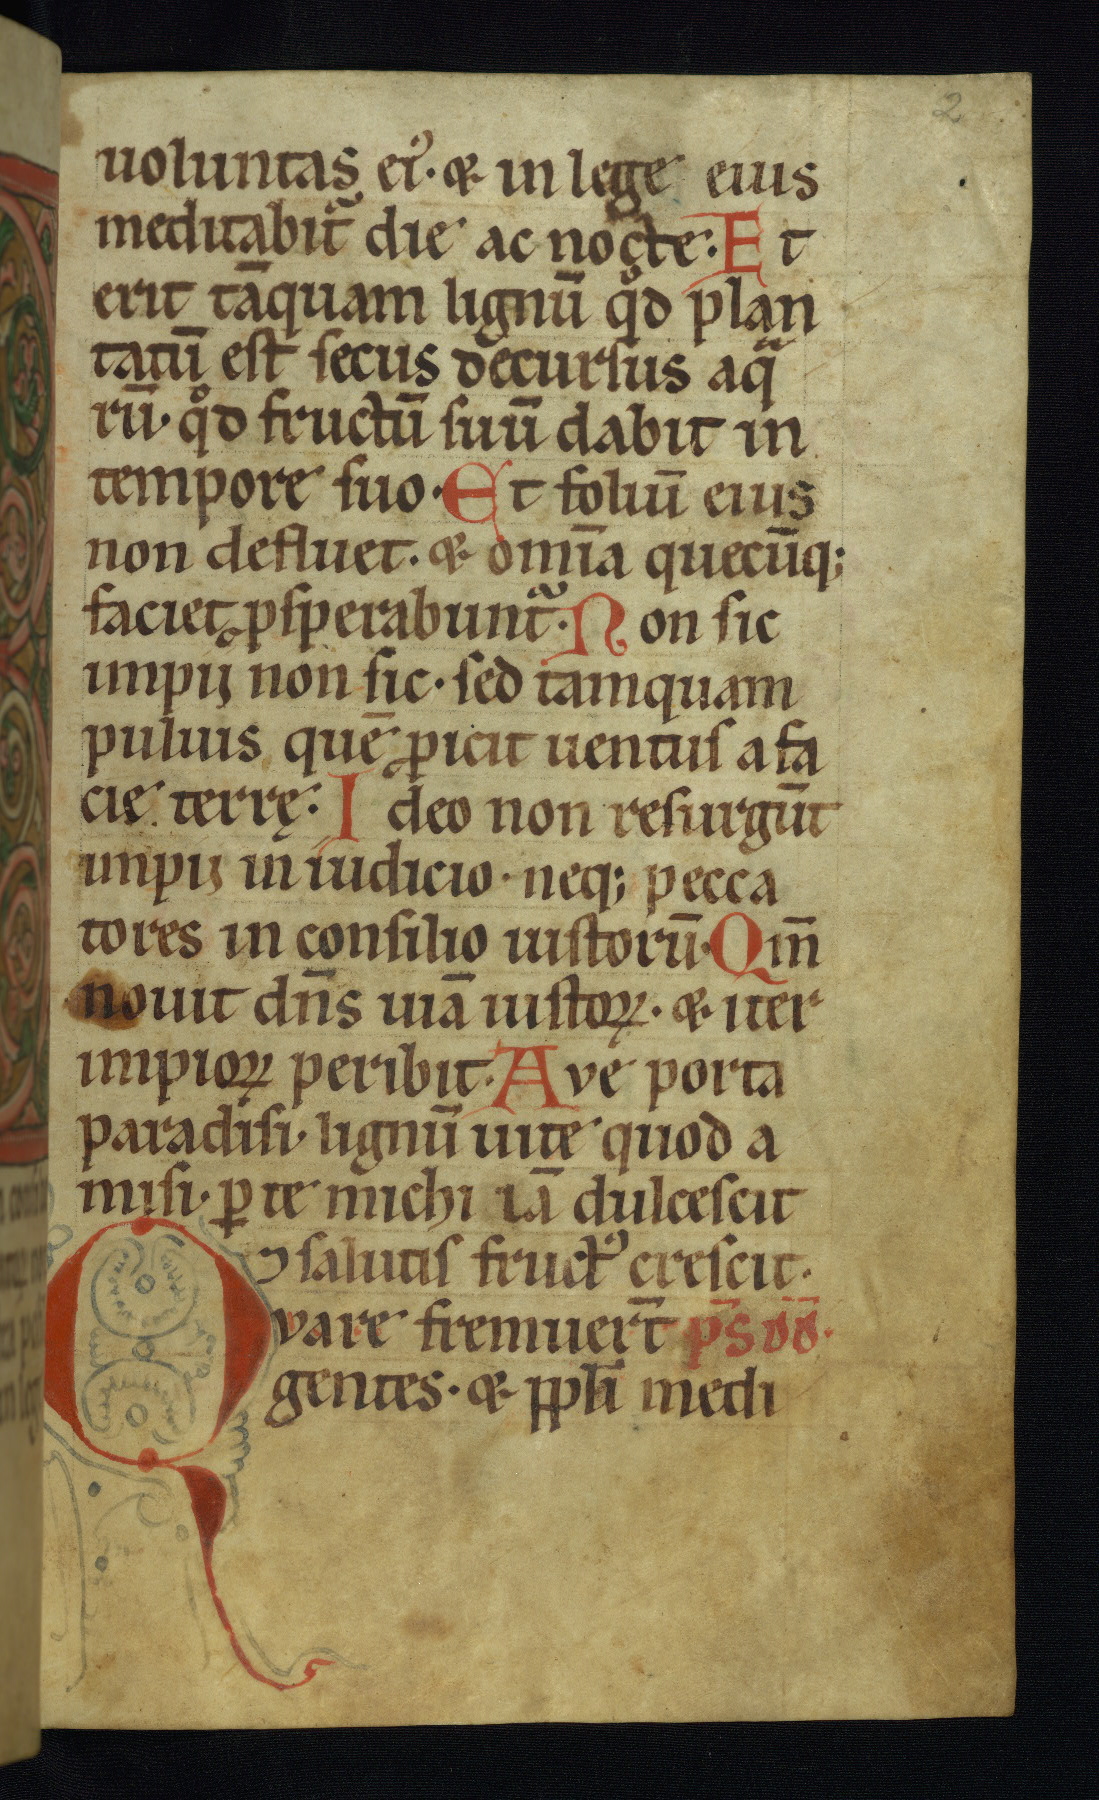 2
uoluntas ei᾿. ⁊ in lege eius
meditabit᷑ die ac nocte. Et
erit tāquam lignū qͦd plan
tatū est secus decursus aqᷓ
rū. qͦd fructū suū dabit in
tempore suo. Et foliū eius
non defluet. ⁊ om̄ia quecūq;
faciet ꝓsperabunt᷑. Non sic
impij non sic. sed tamquam
puluis quē ꝓicit uentus a fa
cie terrę. Ideo non resurgūt
impij in iudicio. neq; pecca
tores in consilio iustorū. Qm̄
nouit dn̄s uiā iustoꝝ. ⁊ iter
impioꝝ peribit. Ave porta
paradisi. lignū uite quod a
misi. ꝑ te michi iā dulcescit
⁊ salutis fructꝰ crescit.
Qvare fremuer̄t p̄s dd̄.
gentes. ⁊ ppl̄i medi